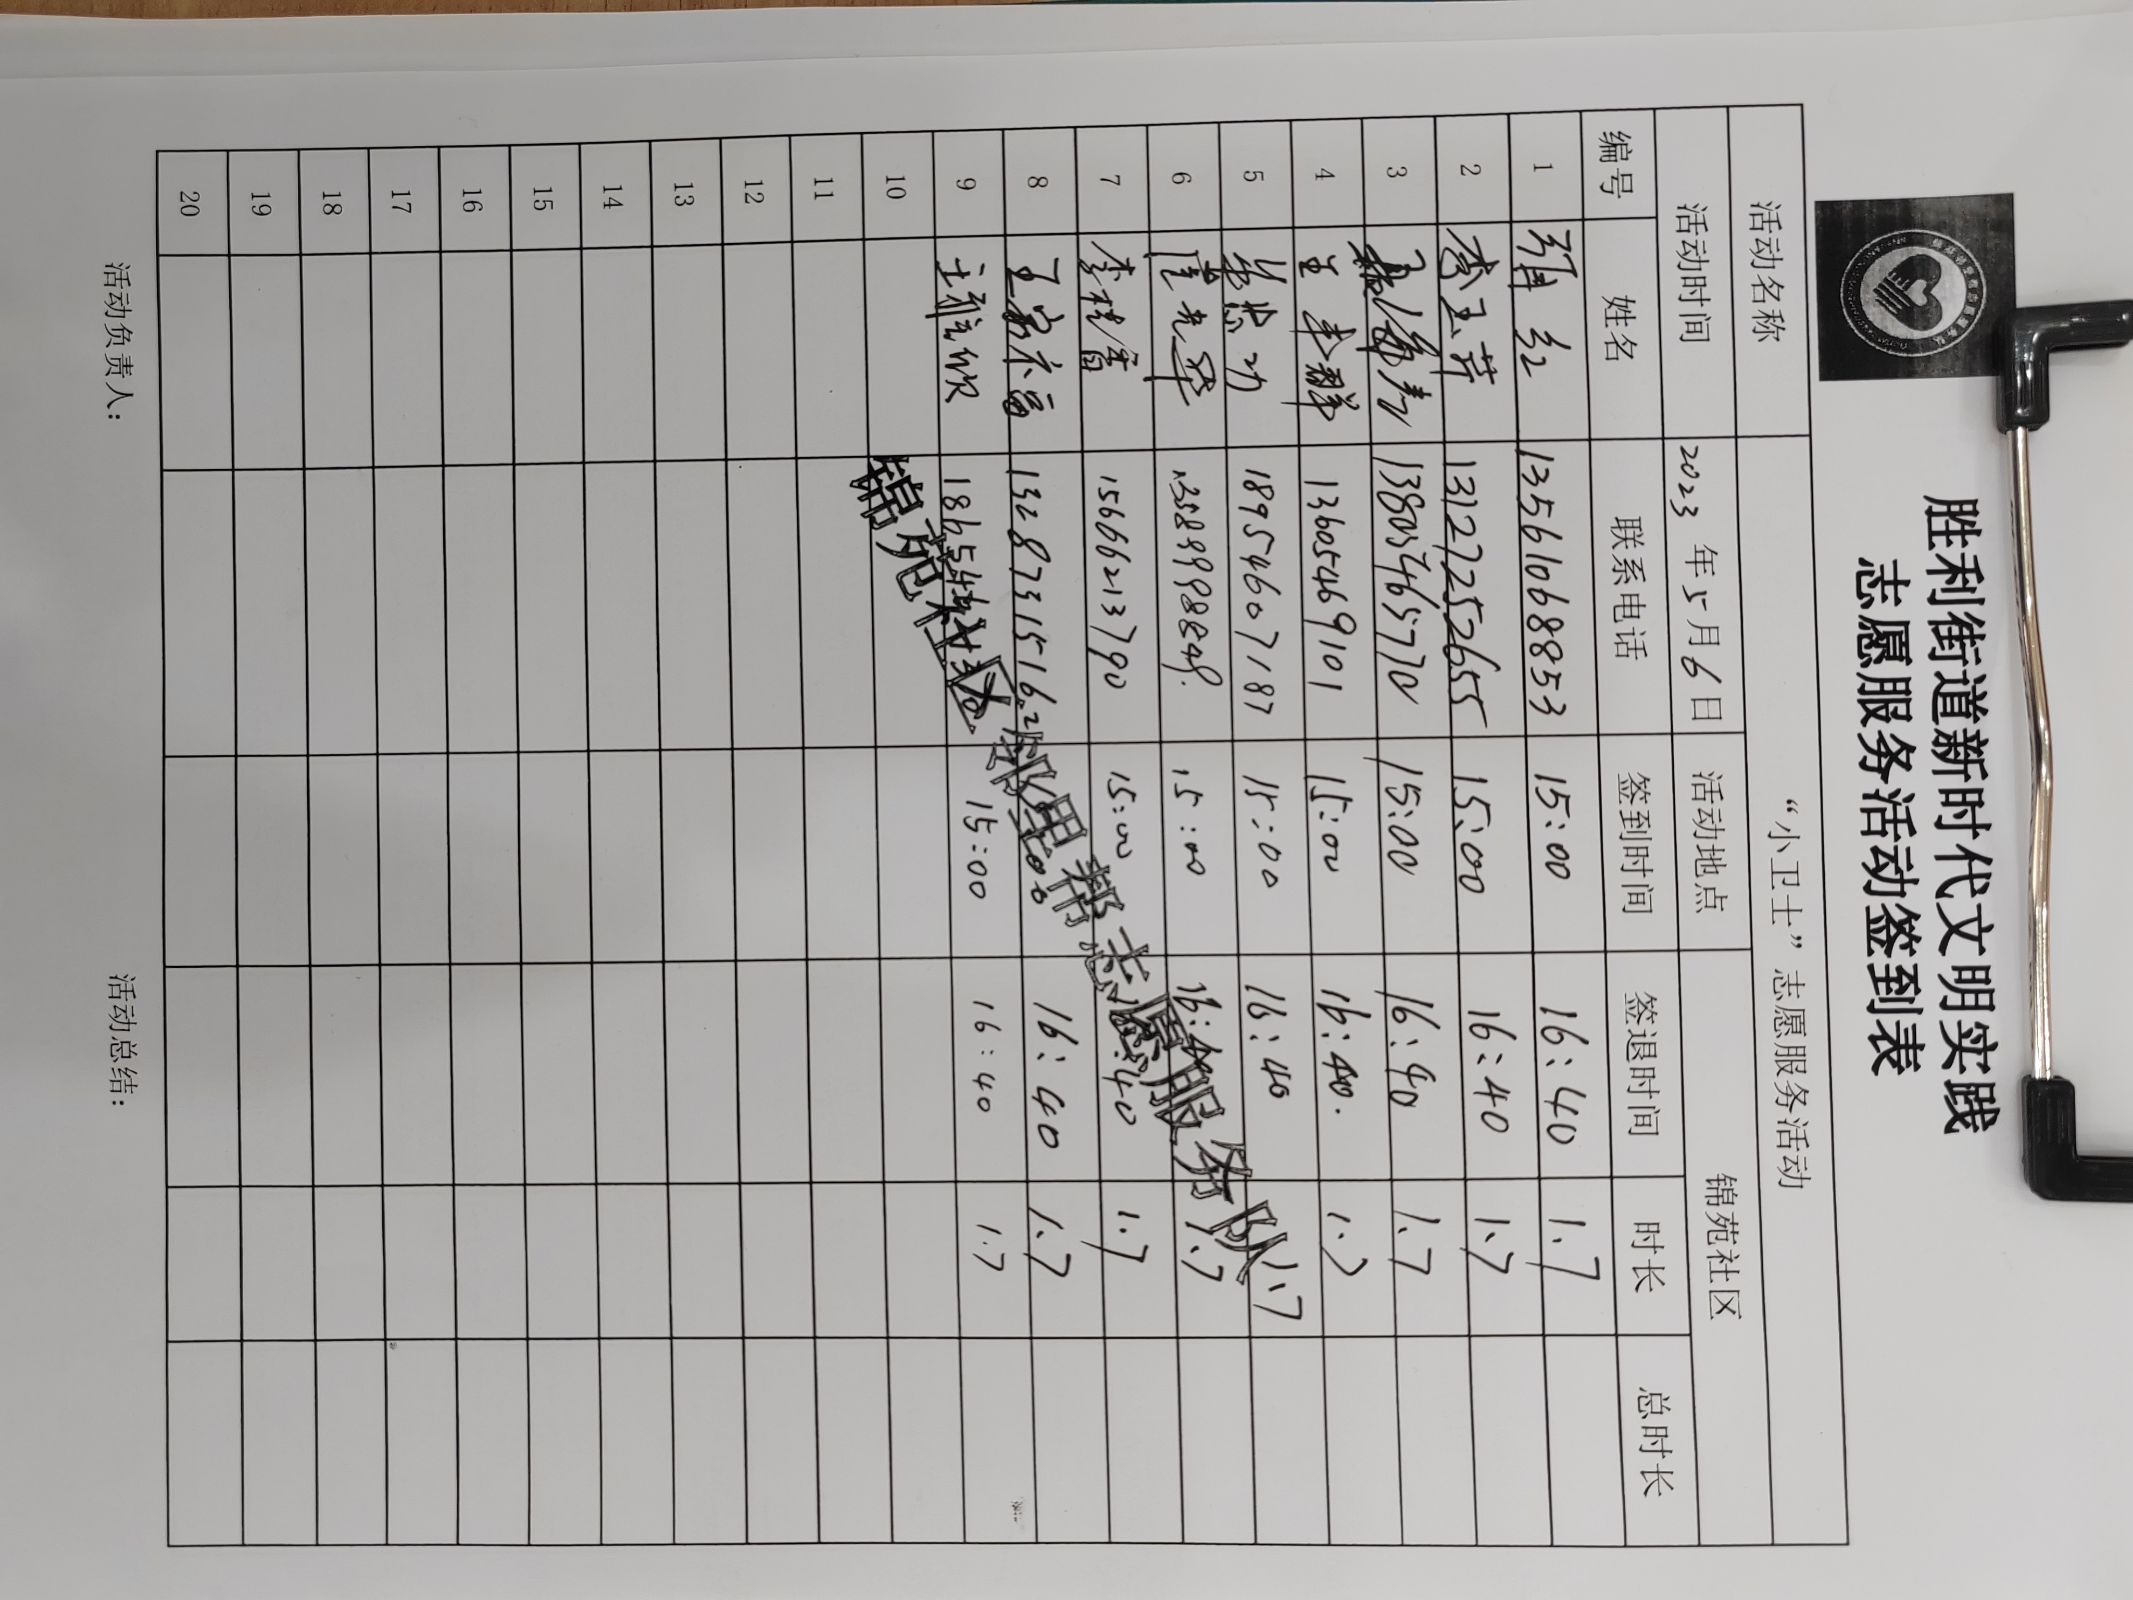 胜利街道新时代文明实践
志愿服务活动签到表
活动名称 “小卫士”志愿服务活动
活动时间 2023年5月6日 活动地点 锦苑社区
编号 姓名 联系电话 签到时间 签退时间 时长 总时长
1 红 13561068853 15:00 16:40 1.7
2 李玉芹 13127252655 15:00 16:40 1.7
3 15:00 16:40 1.7
4 王素群 13605469101 15:00 16:40. 1.7
5 18954607187 15:00 16:40 1.7
6 15:00 1.7
7 李桂香 15666213790 15:00 1.7
8 16:40 1.7
9 15:00 16:40 1.7
10
11
12
13
14
15
16
17
18
19
20
锦苑社区邻里帮志愿服务队
活动负责人： 活动总结：